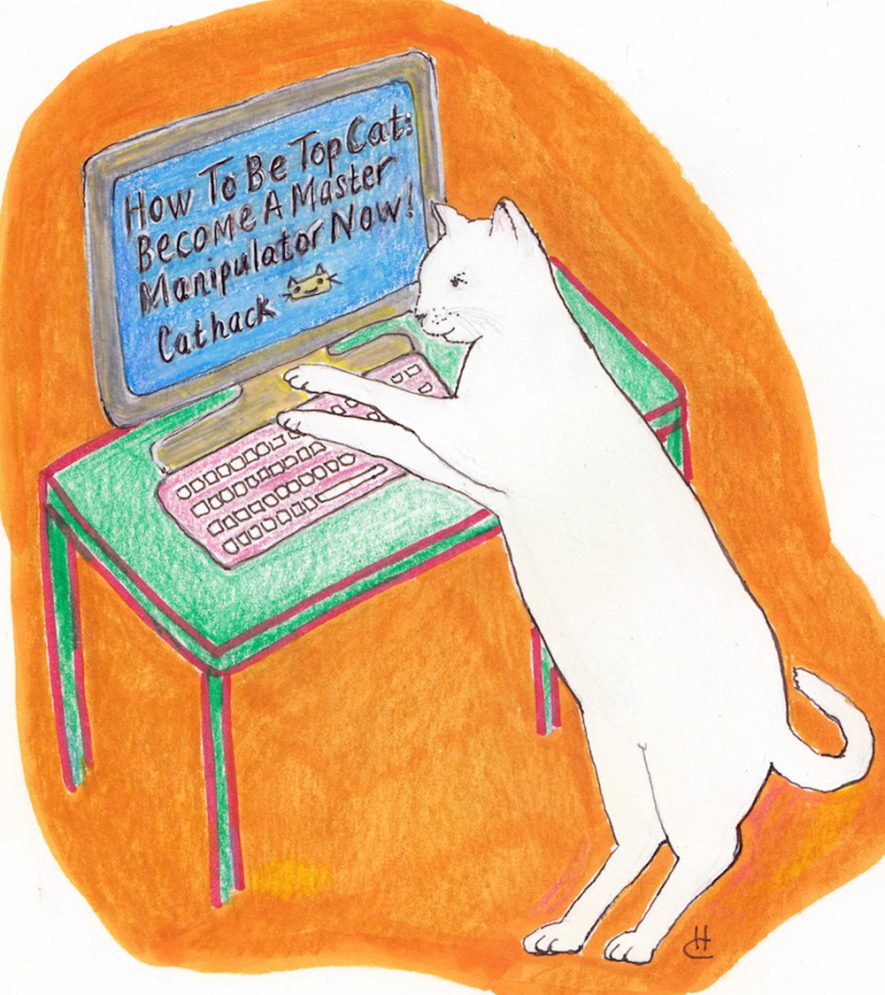 How To Be Top Cat:
Become A Master
Manipulator Now!
Cathack